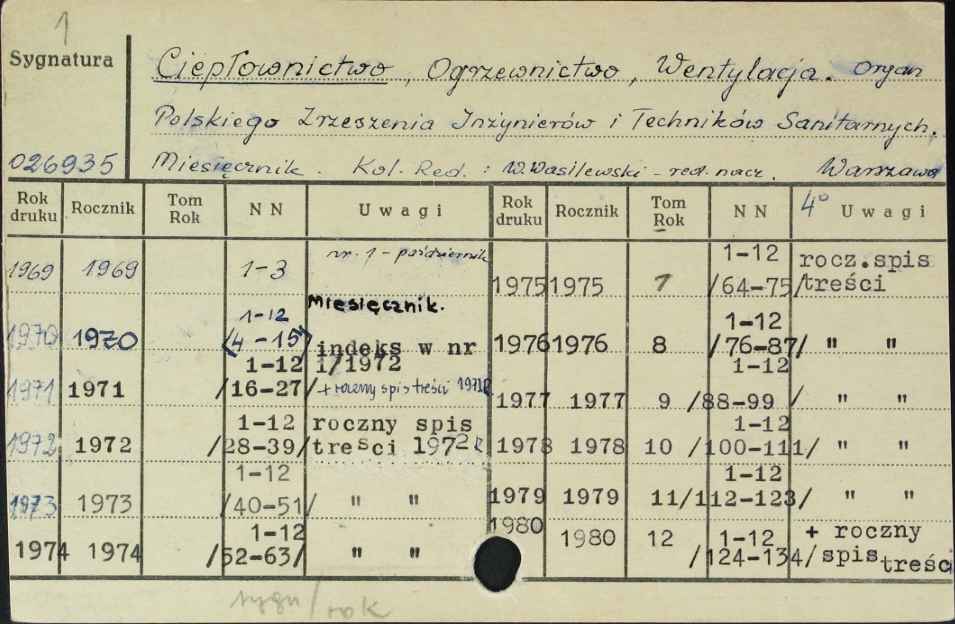 1
Sygnatura
Ciepłownictwo, Ogrzewnictwo, Wentylacja. Organ
Polskiego Zrzeszenia Inżynierów i Techników Sanitarnych.
026935 Miesięcznik. Kol. Red.: W. Wasilewski - red. nacz. Warszawa
Rok druku Rocznik Tom Rok N N U w a g i Rok druku Rocznik Tom Rok N N 4° U w a g i
1969 1969 1-3 nr. 1 - październik
Miesięcznik.
1970 1970 1-12 (4-15) indeks w nr 1/1972
1971 1971 1-12 /16-27/ + roczny spis treści 1971
1972 1972 1-12 /28-39/ roczny spis treści 1972
1973 1973 1-12 /40-51/ " "
1974 1974 1-12 /52-63/ " "
1975 1975 7 1-12 /64-75/ rocz.spis treści
1976 1976 8 1-12 /76-87/ " "
1977 1977 9 1-12 /88-99 / " "
1978 1978 10 1-12 /100-111/ " "
1979 1979 11 1-12 /112-123/ " "
1980 1980 12 1-12 /124-134/ + roczny spis treści
sygn/rok